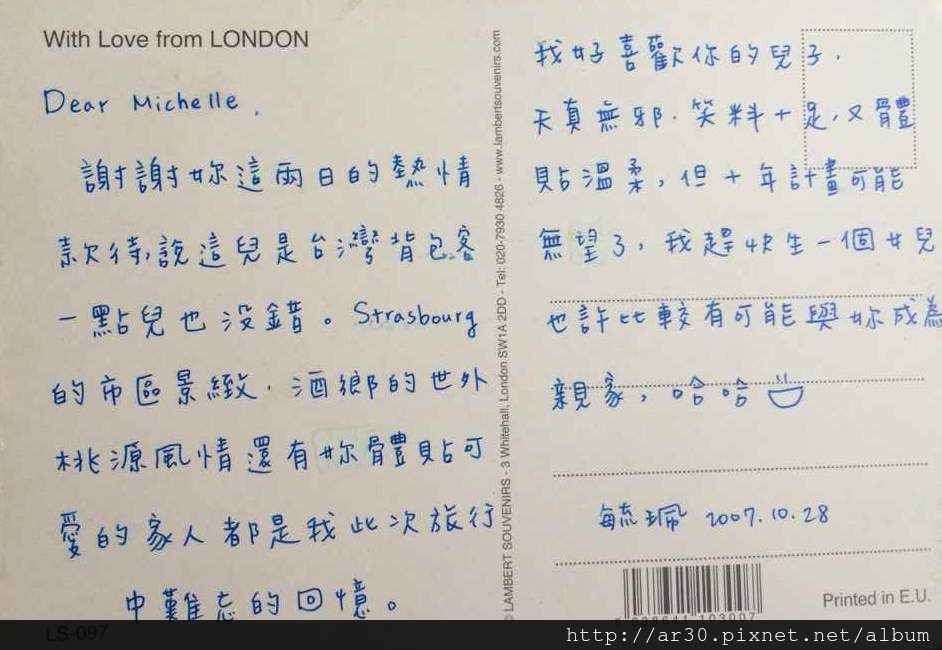 With Love from LONDON
Dear Michelle,
謝謝妳這兩日的熱情
款待,說這兒是台灣背包客
一點兒也沒錯。Strasbourg
的市區景緻,酒鄉的世外
桃源風情還有妳體貼可
愛的家人都是我此次旅行
中難忘的回憶。
LS-097
© LAMBERT SOUVENIRS - 3 Whitehall, London SW1A 2DD - Tel: 020-7930 4826 - www.lambertsouvenirs.com
我好喜歡你的兒子,
天真無邪.笑料十足,又體
貼溫柔,但十年計畫可能
無望了,我趕快生一個女兒
也許比較有可能與妳成為
親家,哈哈
毓珮 2007.10.28
5 028641 103007
Printed in E.U.
http://ar30.pixnet.net/album